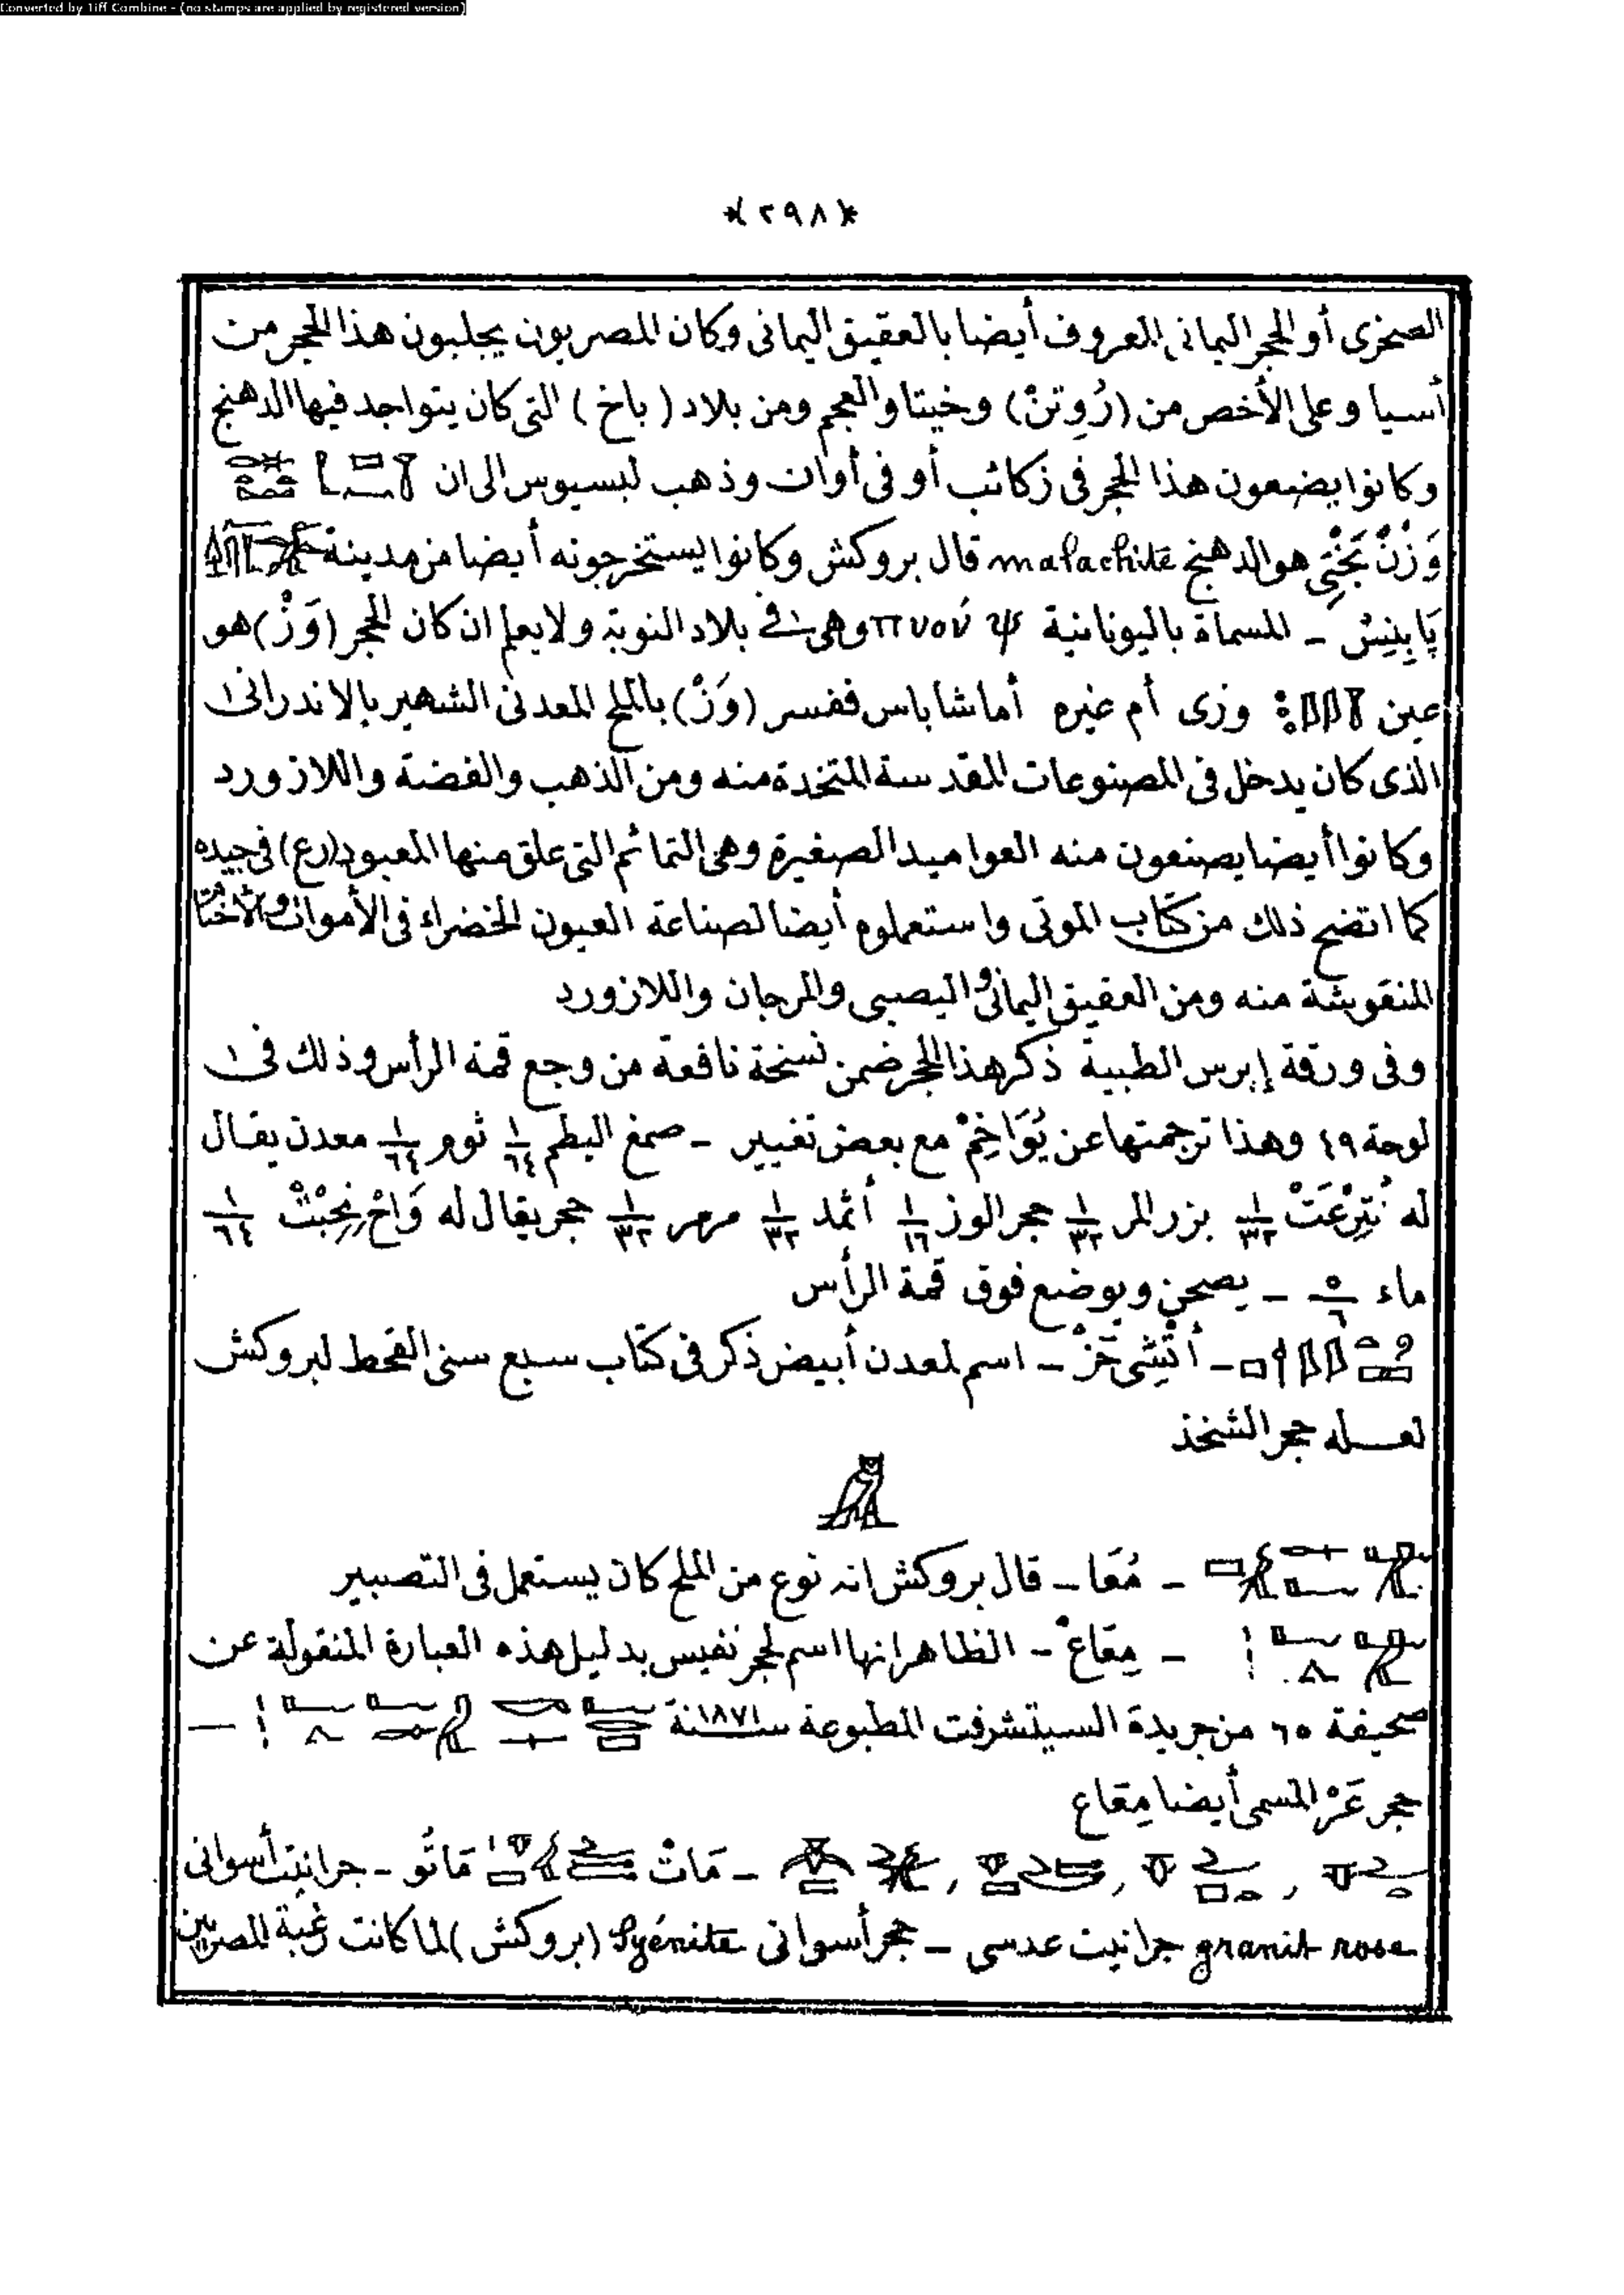 Converted by Tiff Combine - (no stamps are applied by registered version)
*(٢٩٨)*
الصخرى أو الحجر اليمانى المعروف أيضا بالعقيق اليمانى وكان المصريون يجلبون هذا الحجر من
أسيا وعلى الأخص من (رُوتِنْ) وخيتا والعجم ومن بلاد (باخ) التى كان يتواجد فيها الدهنج
وكانوا يضعون هذا الحجر فى زكائب أو فى أوان وذهب لبسيوس الى ان
وَزْنْ بَخْتِى هو الدهنج malachite قال بروكش وكانوا يستخرجونه أيضا من مدينة
پَابِنِسْ – المسماة باليونانية وهى فى بلاد النوبة ولا يعلم ان كان الحجر (وَزْ) هو
عين وزى أم غيره أما شاباس ففسر (وَزْ) بالملح المعدنى الشهير بالاندرانى
الذى كان يدخل فى المصنوعات المقدسة المتخذة منه ومن الذهب والفضة واللازورد
وكانوا أيضا يصنعون منه العواميد الصغيرة وهى التمائم التى علق منها المعبود (رع) فى جيده
كما اتضح ذلك من كتاب الموتى واستعملوه أيضا لصناعة العيون الخضراء فى الأموات
المنقوشة منه ومن العقيق اليمانى واليصبى والمرجان واللازورد
وفى ورقة إبرس الطبية ذكر هذا الحجر ضمن نسخة نافعة من وجع قمة الرأس وذلك فى
لوحة ٤٩ وهذا ترجمتها عن يُوَاخِمْ مع بعض تغيير – صمغ البطم ١/٦٤ ثوم ١/٦٤ معدن يقال
له نُتِرْعَتْ ١/٣٢ بزر المر ١/٣٢ حجر الوز ١/١٦ أثمد ١/٣٢ مرمر ١/٣٢ حجر يقال له وَاحْ نِحِبْتْ ١/٦٤
ماء ٥/٦ – يصحن ويوضع فوق قمة الرأس
– أنْشِى حَزْ – اسم لمعدن أبيض ذكر فى كتاب سبع سنى القحط لبروكش
لعله حجر الشخذ
– مُعَا – قال بروكش انه نوع من الملح كان يستعمل فى التصبير
– مِقَاعْ – الظاهر انها اسم لحجر نفيس بدليل هذه العبارة المنقولة عن
صحيفة ٦٥ من جريدة السيتشرفت المطبوعة سنة ١٨٧١ –
حجر عَرْ المسمى أيضا مِقَاع
– مَاتْ مَاتُو – جرانيت أسوانى
granit rose جرانيت عدسى – حجر أسوانى Syénite (بروكش) لما كانت رغبة المصريين